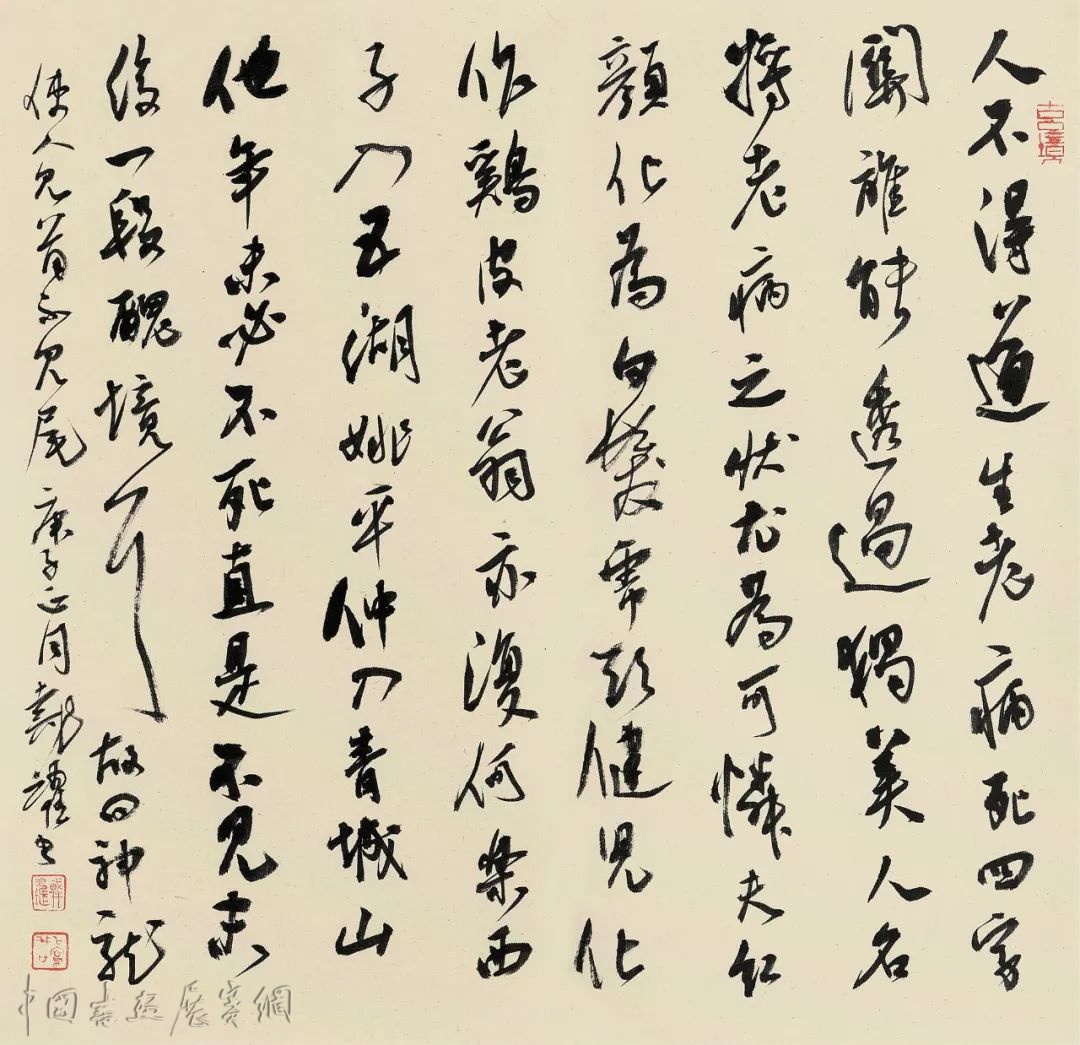 人不得道生老病死四字
關誰能透過獨美人名
將老病之狀尤為可憐夫紅
顏化為白髮虎頭健兒化
作鷄皮老翁亦復何樂西
子入五湖姚平仲入青城山
他年未必不死直是不見末
後一段醜境耳故曰神龍
使人見首不見尾庚子正月戴書
中國書法展賽網